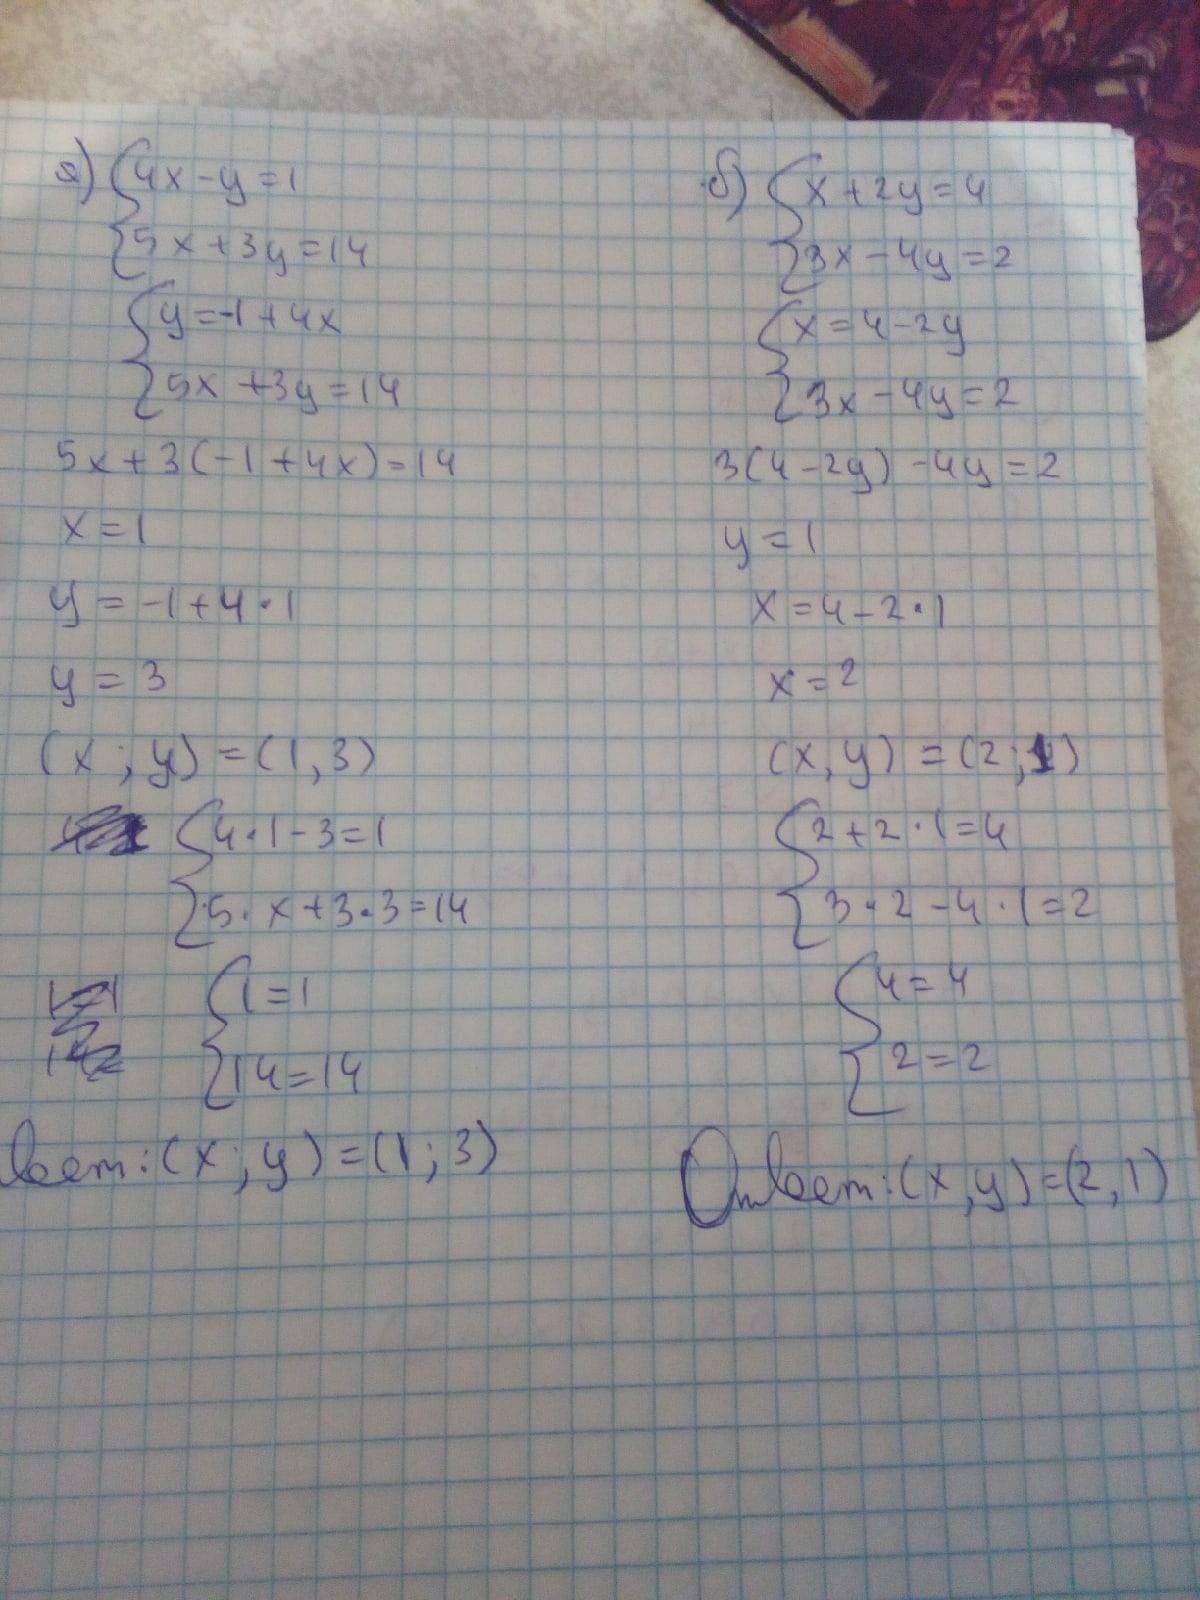 а) { 4x - y = 1
5x + 3y = 14
{ y = -1 + 4x
5x + 3y = 14
5x + 3(-1 + 4x) = 14
x = 1
y = -1 + 4 · 1
y = 3
(x; y) = (1, 3)
{ 4 · 1 - 3 = 1
5 · x + 3 · 3 = 14
{ 1 = 1
14 = 14
вет: (x; y) = (1; 3)
б) { x + 2y = 4
3x - 4y = 2
{ x = 4 - 2y
3x - 4y = 2
3(4 - 2y) - 4y = 2
y = 1
x = 4 - 2 · 1
x = 2
(x, y) = (2; 1)
{ 2 + 2 · 1 = 4
3 · 2 - 4 · 1 = 2
{ 4 = 4
2 = 2
Ответ: (x, y) = (2, 1)